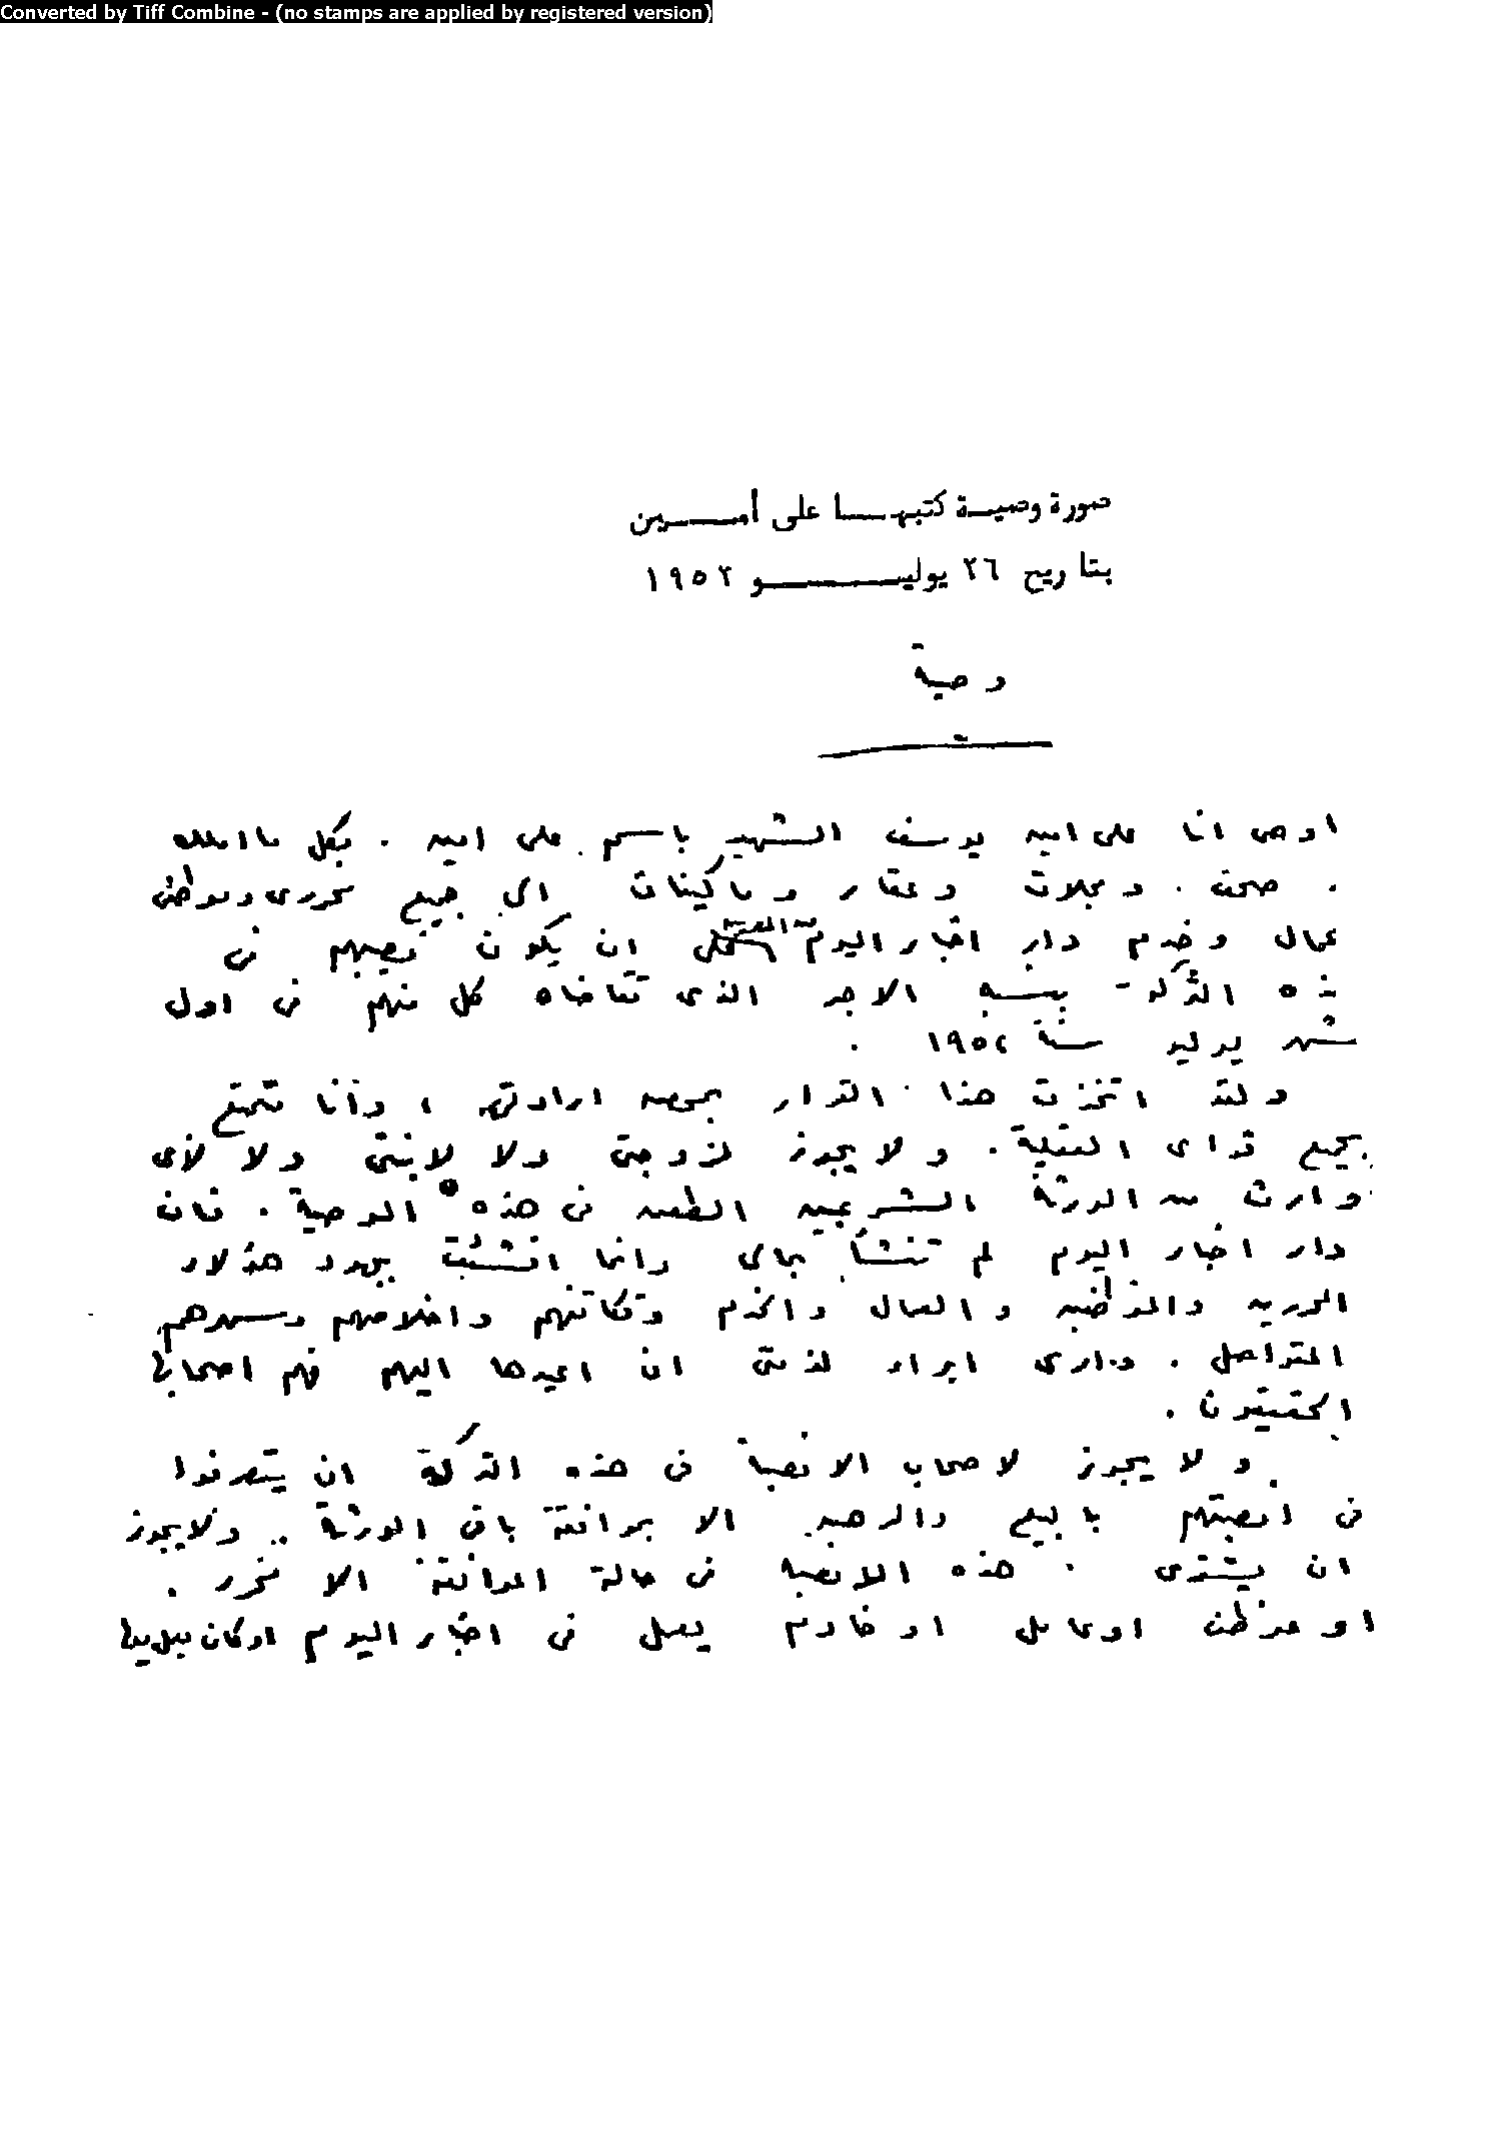 Converted by Tiff Combine - (no stamps are applied by registered version)
صورة وصية كتبها على أمين
بتاريح ٢٦ يوليو ١٩٥٢
وصية
اوصى انا على امين يوسف الشهير باسم على امين . بكل ما املك
. صحف . ومجلات وعقار وماكينات الى جميع محررى وموظفى
عمال وخدم دار اخبار اليوم على ان يكون نصيبهم فى
هذه التركة بنسبة الاجر الذى تقاضاه كل منهم فى اول
شهر يوليو سنة ١٩٥٢ .
ولقد اتخذت هذا القرار بمحض ارادتى ، وأنا متمتع
بجميع قواى العقلية . ولا يجوز لزوجتى ولا لابنتى ولا لأى
وارث من الورثة الشرعيين الطعن فى هذه الوصية . فان
دار اخبار اليوم لم تنشأ بمالى وانما انشئت بجهود هؤلاء
المحررين والموظفين والعمال والخدم وتكاتفهم واخلاصهم وسهرهم
المتواصل . وارى ابراء لذمتى ان اعيدها اليهم فهم اصحابها
الحقيقيون .
ولا يجوز لاصحاب الانصبة فى هذه التركة ان يتصرفوا
فى انصبتهم بالبيع والرهن الا بموافقة باقى الورثة .. ولا يجوز
ان يشترى هذه الانصبة فى حالة الموافقة الا محرر .
او موظف او عامل او خادم يعمل فى اخبار اليوم اوكان يعمل بها